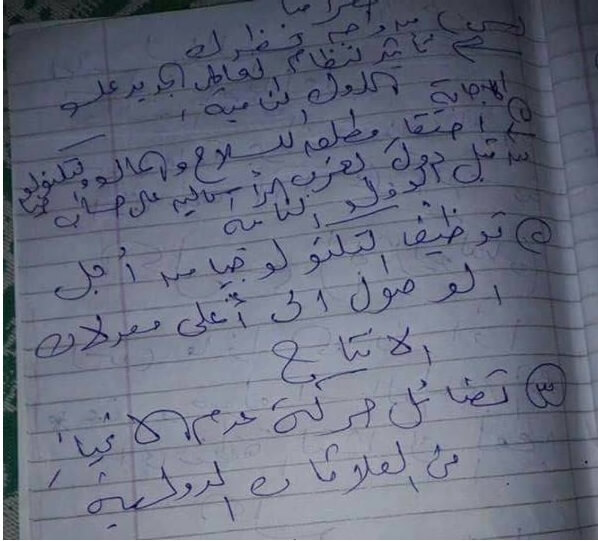 س/ من وجه نظرك
تأثير النظام العالمي الجديد على
الدول النامية
الاجابة
① احتقار مطلق للسلاح والمال والتكنولوجيا
من قبل دول لغرب الرأسمالية على حساب
الدول النامية
② توظيف التكنولوجيا من أجل
الوصول الى أعلى معدلات
الانتاج
③ تضائل حركة عدم الانحياز
في العلاقات الدولية